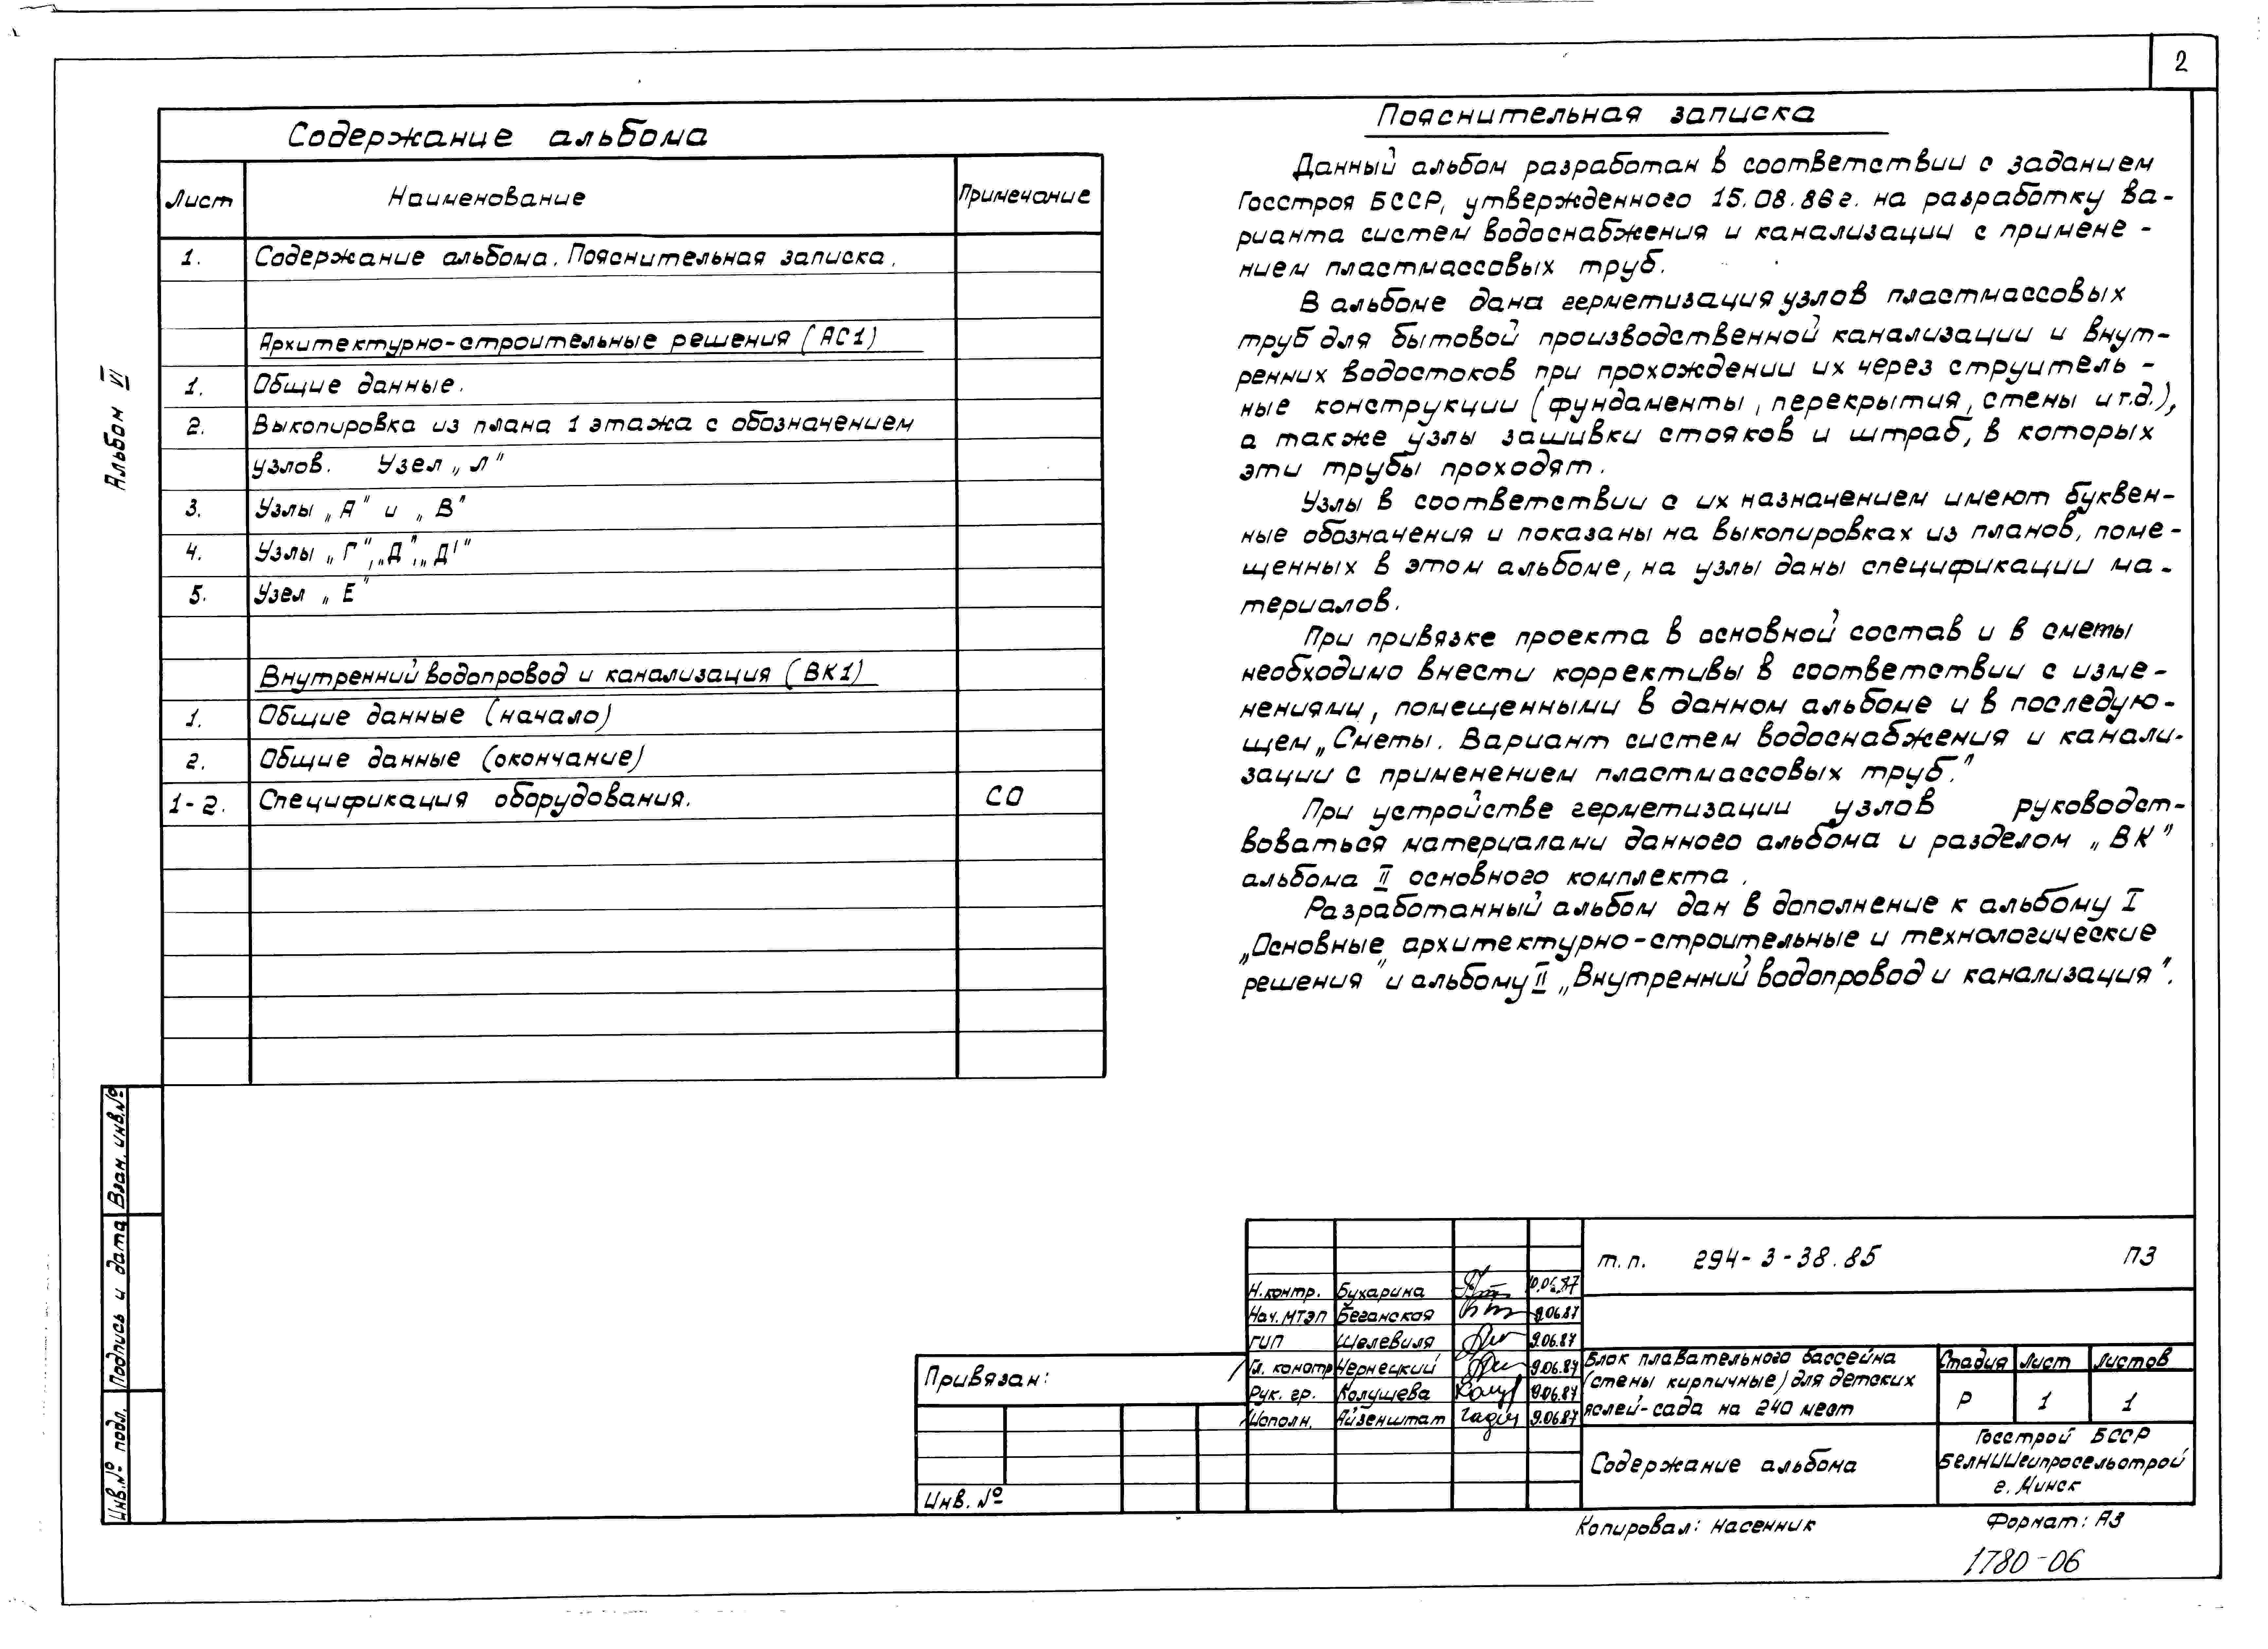 2
Содержание альбома
Лист Наименование Примечание
1. Содержание альбома. Пояснительная записка.
Архитектурно-строительные решения (АС1)
1. Общие данные.
2. Выкопировка из плана 1 этажа с обозначением
узлов. Узел „Л"
3. Узлы „А" и „В"
4. Узлы „Г", „Д", „Д¹"
5. Узел „Е"
Внутренний водопровод и канализация (ВК1)
1. Общие данные (начало)
2. Общие данные (окончание)
1-2. Спецификация оборудования. СО
Пояснительная записка
Данный альбом разработан в соответствии с заданием
Госстроя БССР, утвержденного 15.08.86г. на разработку ва-
рианта систем водоснабжения и канализации с примене-
нием пластмассовых труб.
В альбоме дана герметизация узлов пластмассовых
труб для бытовой производственной канализации и внут-
ренних водостоков при прохождении их через струитель-
ные конструкции (фундаменты, перекрытия, стены и т.д.),
а также узлы зашивки стояков и штраб, в которых
эти трубы проходят.
Узлы в соответствии с их назначением имеют буквен-
ные обозначения и показаны на выкопировках из планов, поме-
щенных в этом альбоме, на узлы даны спецификации ма-
териалов.
При привязке проекта в основной состав и в сметы
необходимо внести коррективы в соответствии с изме-
нениями, помещенными в данном альбоме и в последую-
щем „Сметы. Вариант систем водоснабжения и канали-
зации с применением пластмассовых труб."
При устройстве герметизации узлов руководст-
воваться материалами данного альбома и разделом „ВК"
альбома II основного комплекта.
Разработанный альбом дан в дополнение к альбому I
„Основные архитектурно-строительные и технологические
решения" и альбому II „Внутренний водопровод и канализация".
Альбом VI
Взам. инв. №
Подпись и дата
Инв. № подл.
Привязан:
Инв. №
Н.контр. Бухарина 10.06.87
Нач. МТЭП Беганская 9.06.87
ГИП Шелевиля 9.06.87
Гл. констр Чернецкий 9.06.87
Рук. гр. Колушева 9.06.87
Исполн. Айзенштат 9.06.87
т.п. 294-3-38.85 ПЗ
Блок плавательного бассейна
(стены кирпичные) для детских
яслей-сада на 240 мест
Стадия Лист Листов
Р 1 1
Содержание альбома
Госстрой БССР
БелНИИгипросельстрой
г. Минск
Копировал: Насенник Формат: А3
1780-06